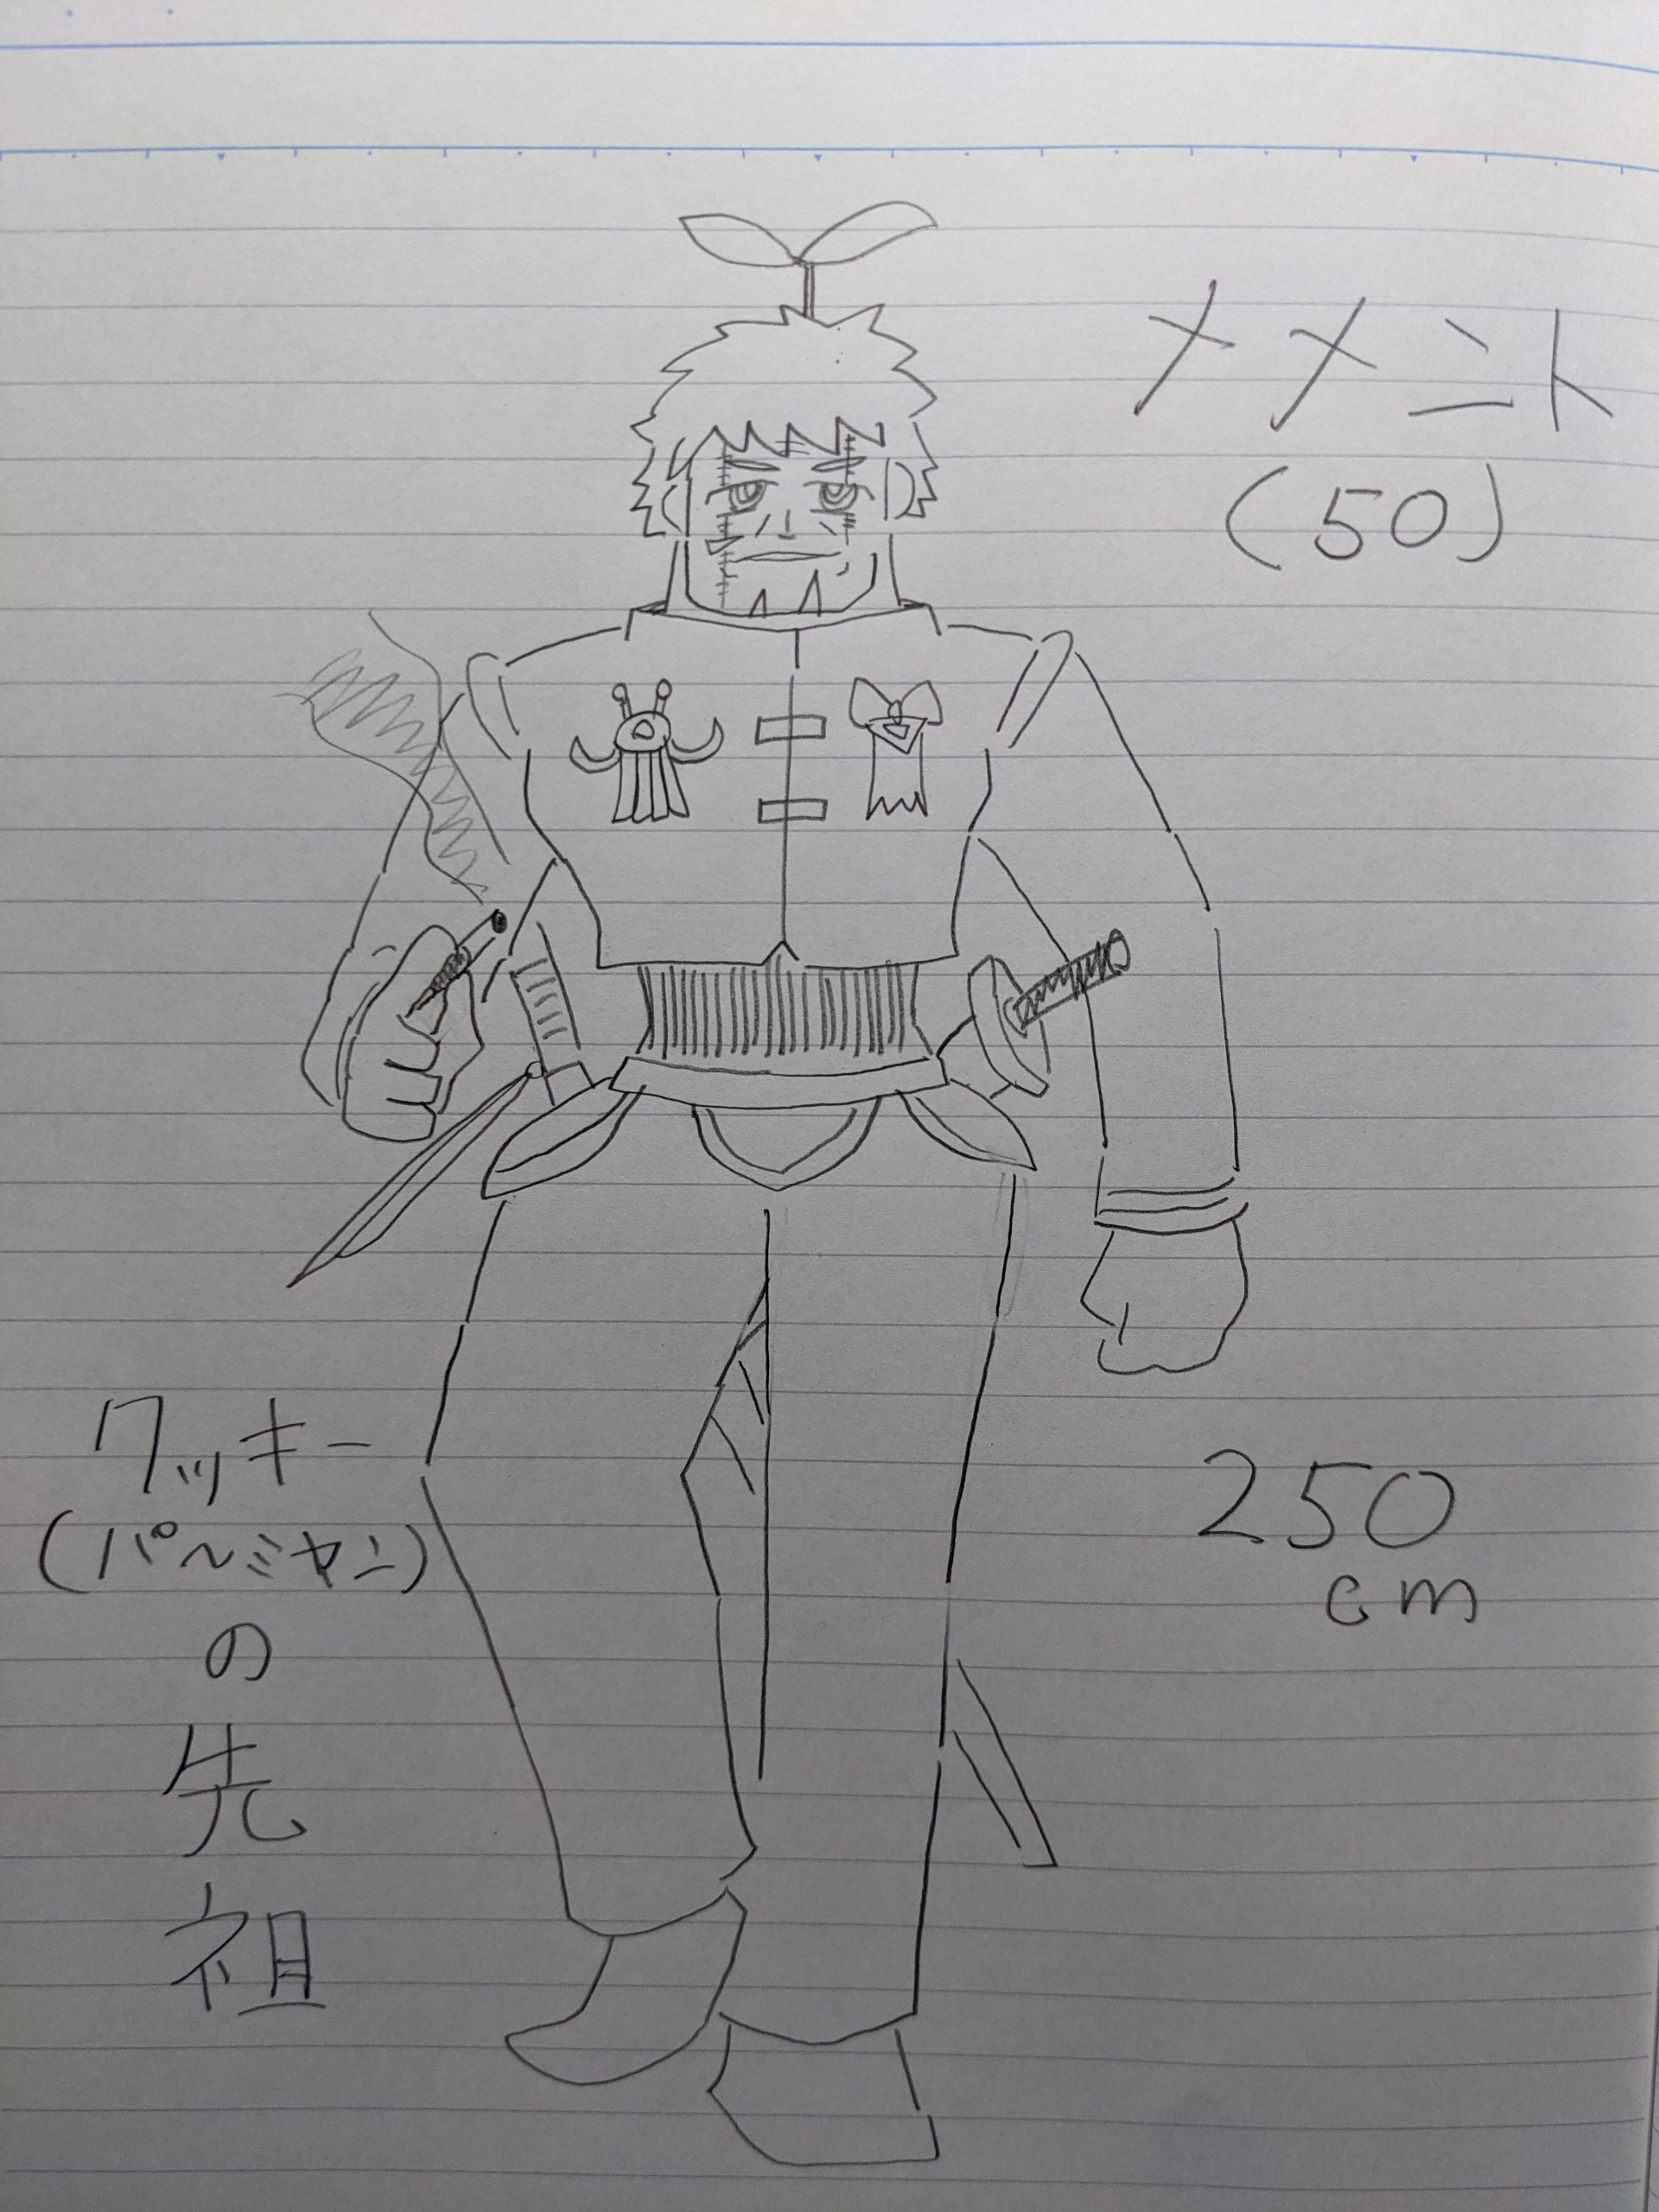 メメント
(50)
ワッキー
(パルミヤン)
の
先
祖
250
cm